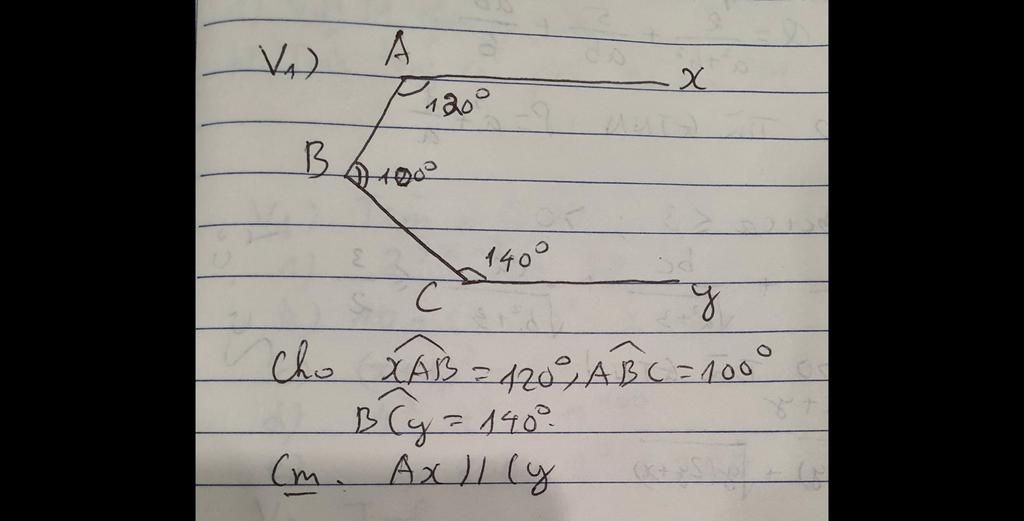 V1)
A
x
120°
B
100°
140°
C
y
Cho xAB = 120°, ABC = 100°
BCy = 140°.
Cm. Ax // Cy